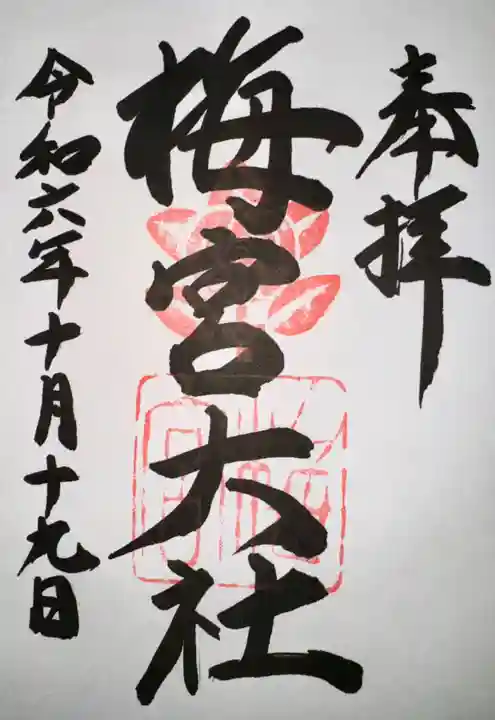 奉拝
梅宮大社
令和六年十月十九日